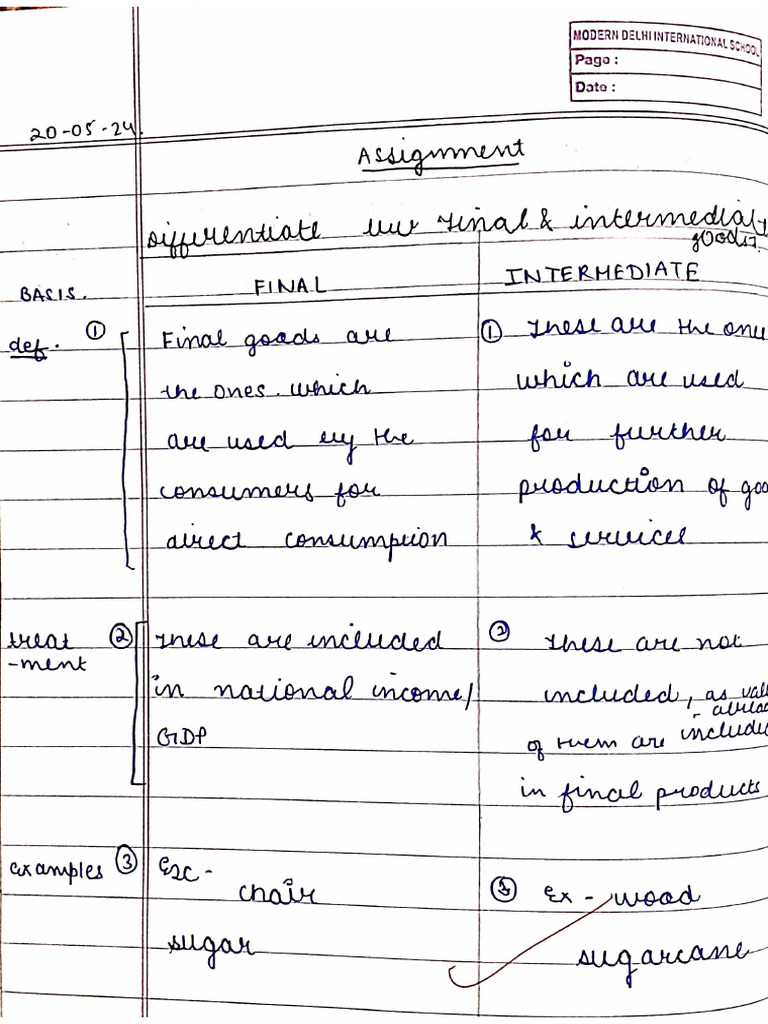 MODERN DELHI INTERNATIONAL SCHOOL
Page :
Date :
20-05-24
Assignment
Differentiate b/w Final & intermediate
goods.
BASIS. FINAL INTERMEDIATE
def. ① Final goods are ① These are the one
the ones which which are used
are used by the for further
consumers for production of goo
direct consumption & services
treat ② These are included ② These are not
-ment
in national income/ included, as val
GDP of them are already included
in final products
examples ③ Ex - ③ Ex - wood
chair
sugar sugarcane